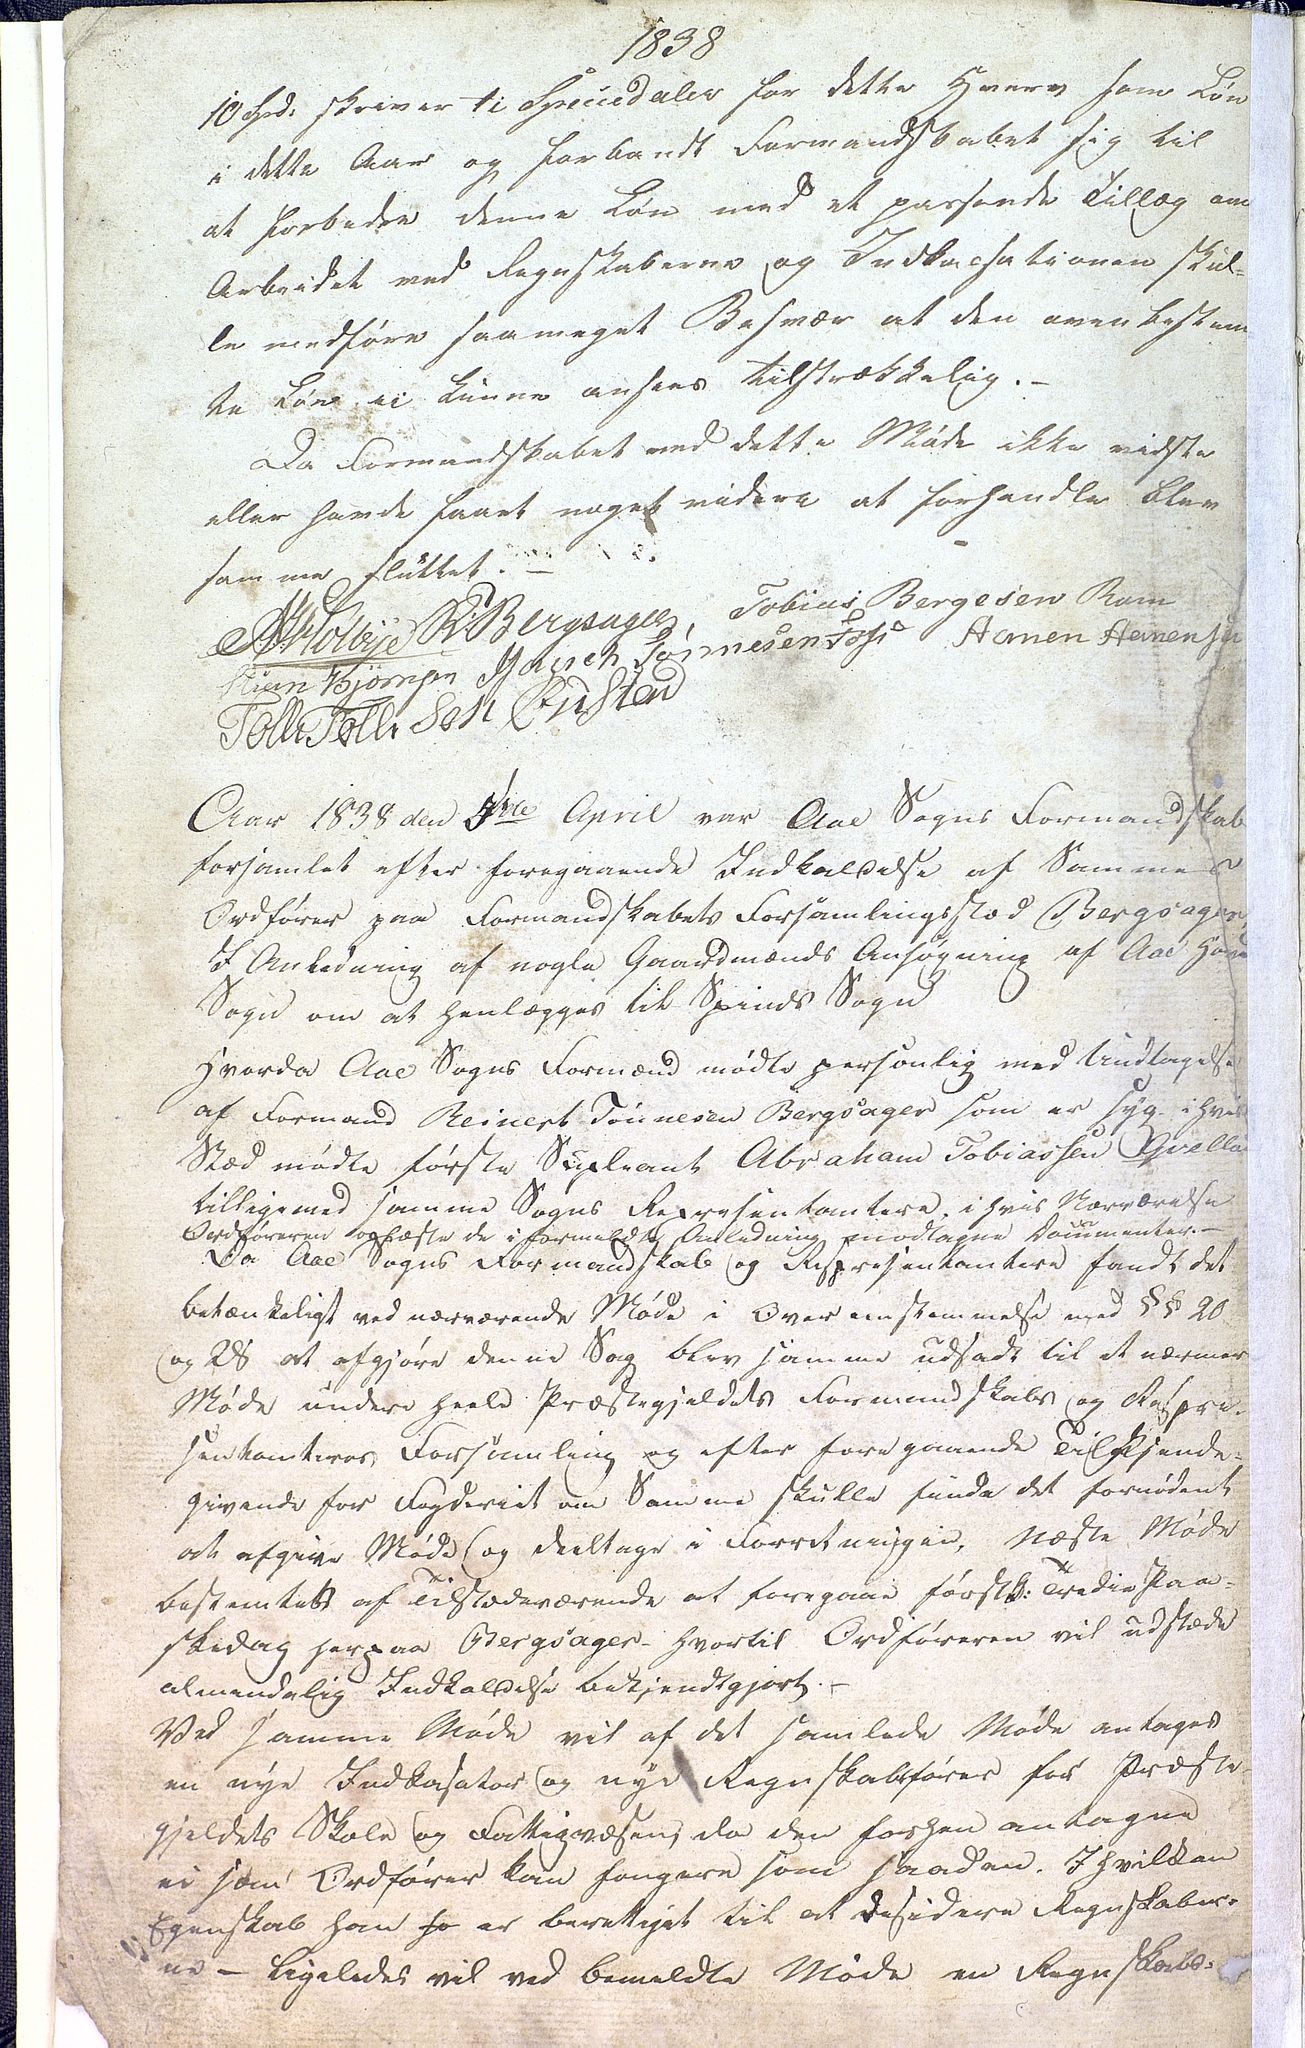 1838
10 Spd. skriver ti Speciedaler for dette Hverv som Løn
i dette Aar og forbandt Formandskabet sig til
at forbedre denne Løn med et passende Tillæg om
Arbeidet ved Regnskaberne og Indkassationen skul-
le medføre saameget Besvær at den ovenbestem
te Løn ei kunne ansees tilstrækkelig. -
Da Formandskabet ved dette Møde ikke vidste
eller havde faaet noget videre at forhandle blev
samme sluttet. -
R: Bergsager, Tobias Bergesen Rom
Tønnesen Foss
Tolli Tolli Sen
Aar 1838 den 5te April var Aae Sogns Formandskab
forsamlet efter foregaaende Indkaldelse af Sammes
Ordfører paa Formandskabets Forsamlingsstæd Bergsager,
I Anledning af nogle Gaardmænds Ansøgning af Aae Hoved
Sogn om at henlægges til Spinds Sogn
Hvorda Aae Sogns Formænd mødte personlig med Undtagelse
af Formand Reinert Tønnesen Bergsager som er syg i hvis
Stæd mødte første Supleant Abraham Tobiassen Qvella
tilligemed samme Sogns Repræsentantere, i hvis Nærværelse
Ordføreren oplæste de i formeldte Anledning modtagne Documenter. -
Da Aae Sogns Formandskab og Repræsentantere fandt det
betænkeligt ved nærværende Møde i Overeenstemmelse med §§ 20
og 28 at afgjøre denne Sag blev samme udsadt til et nærmer
Møde under heele Præstegjeldets Formandskabs og Repræ-
sentanteres Forsamling og efter foregaaende Tilkjende-
givende for Fogderiet om Samme skulle finde det fornødent
at afgive Møde og deeltage i Forretningen. Næste Møde
bestemtes af Tilstædeværende at foregaae førstk: Tredie Paa-
skedag herpaa Bergsager - hvortil Ordføreren vil udstæde
almindelig Indkaldelse bekjendtgjort. -
Ved samme Møde vil af det samlede Møde antages
en nye Indkasator og nye Regnskabsfører for Præste-
gjeldets Skole og Fattigvæsen, da den forhen antagne
ei som Ordfører kan fongere som saadan. I hvilken
Egenskab han er berettiget til at desidere Regnskaber-
ne - Ligeledes vil ved bemeldte Møde en Regnskabs-